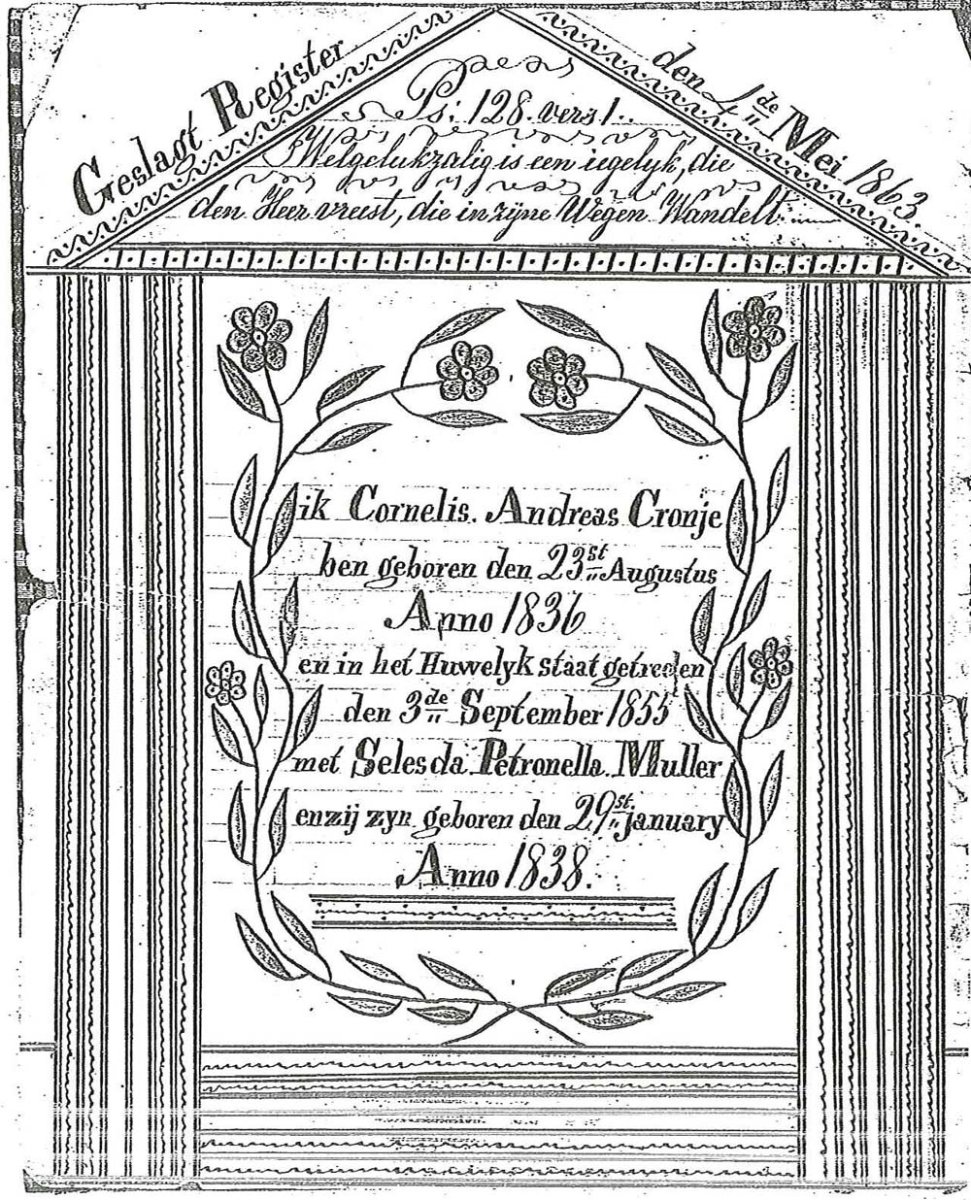 Geslagt Register
den 4de Mei 1863
Ps: 128. vers 1.
Welgelukzalig is een iegelyk, die
den Heer vreest, die in zÿne Wegen Wandelt.
ik Cornelis. Andreas Cronje
ben geboren den 23st Augustus
Anno 1836
en in het Huwelyk staat getreden
den 3de September 1855
met Selesda Petronella. Muller
enzij zyn geboren den 29st january
Anno 1838.